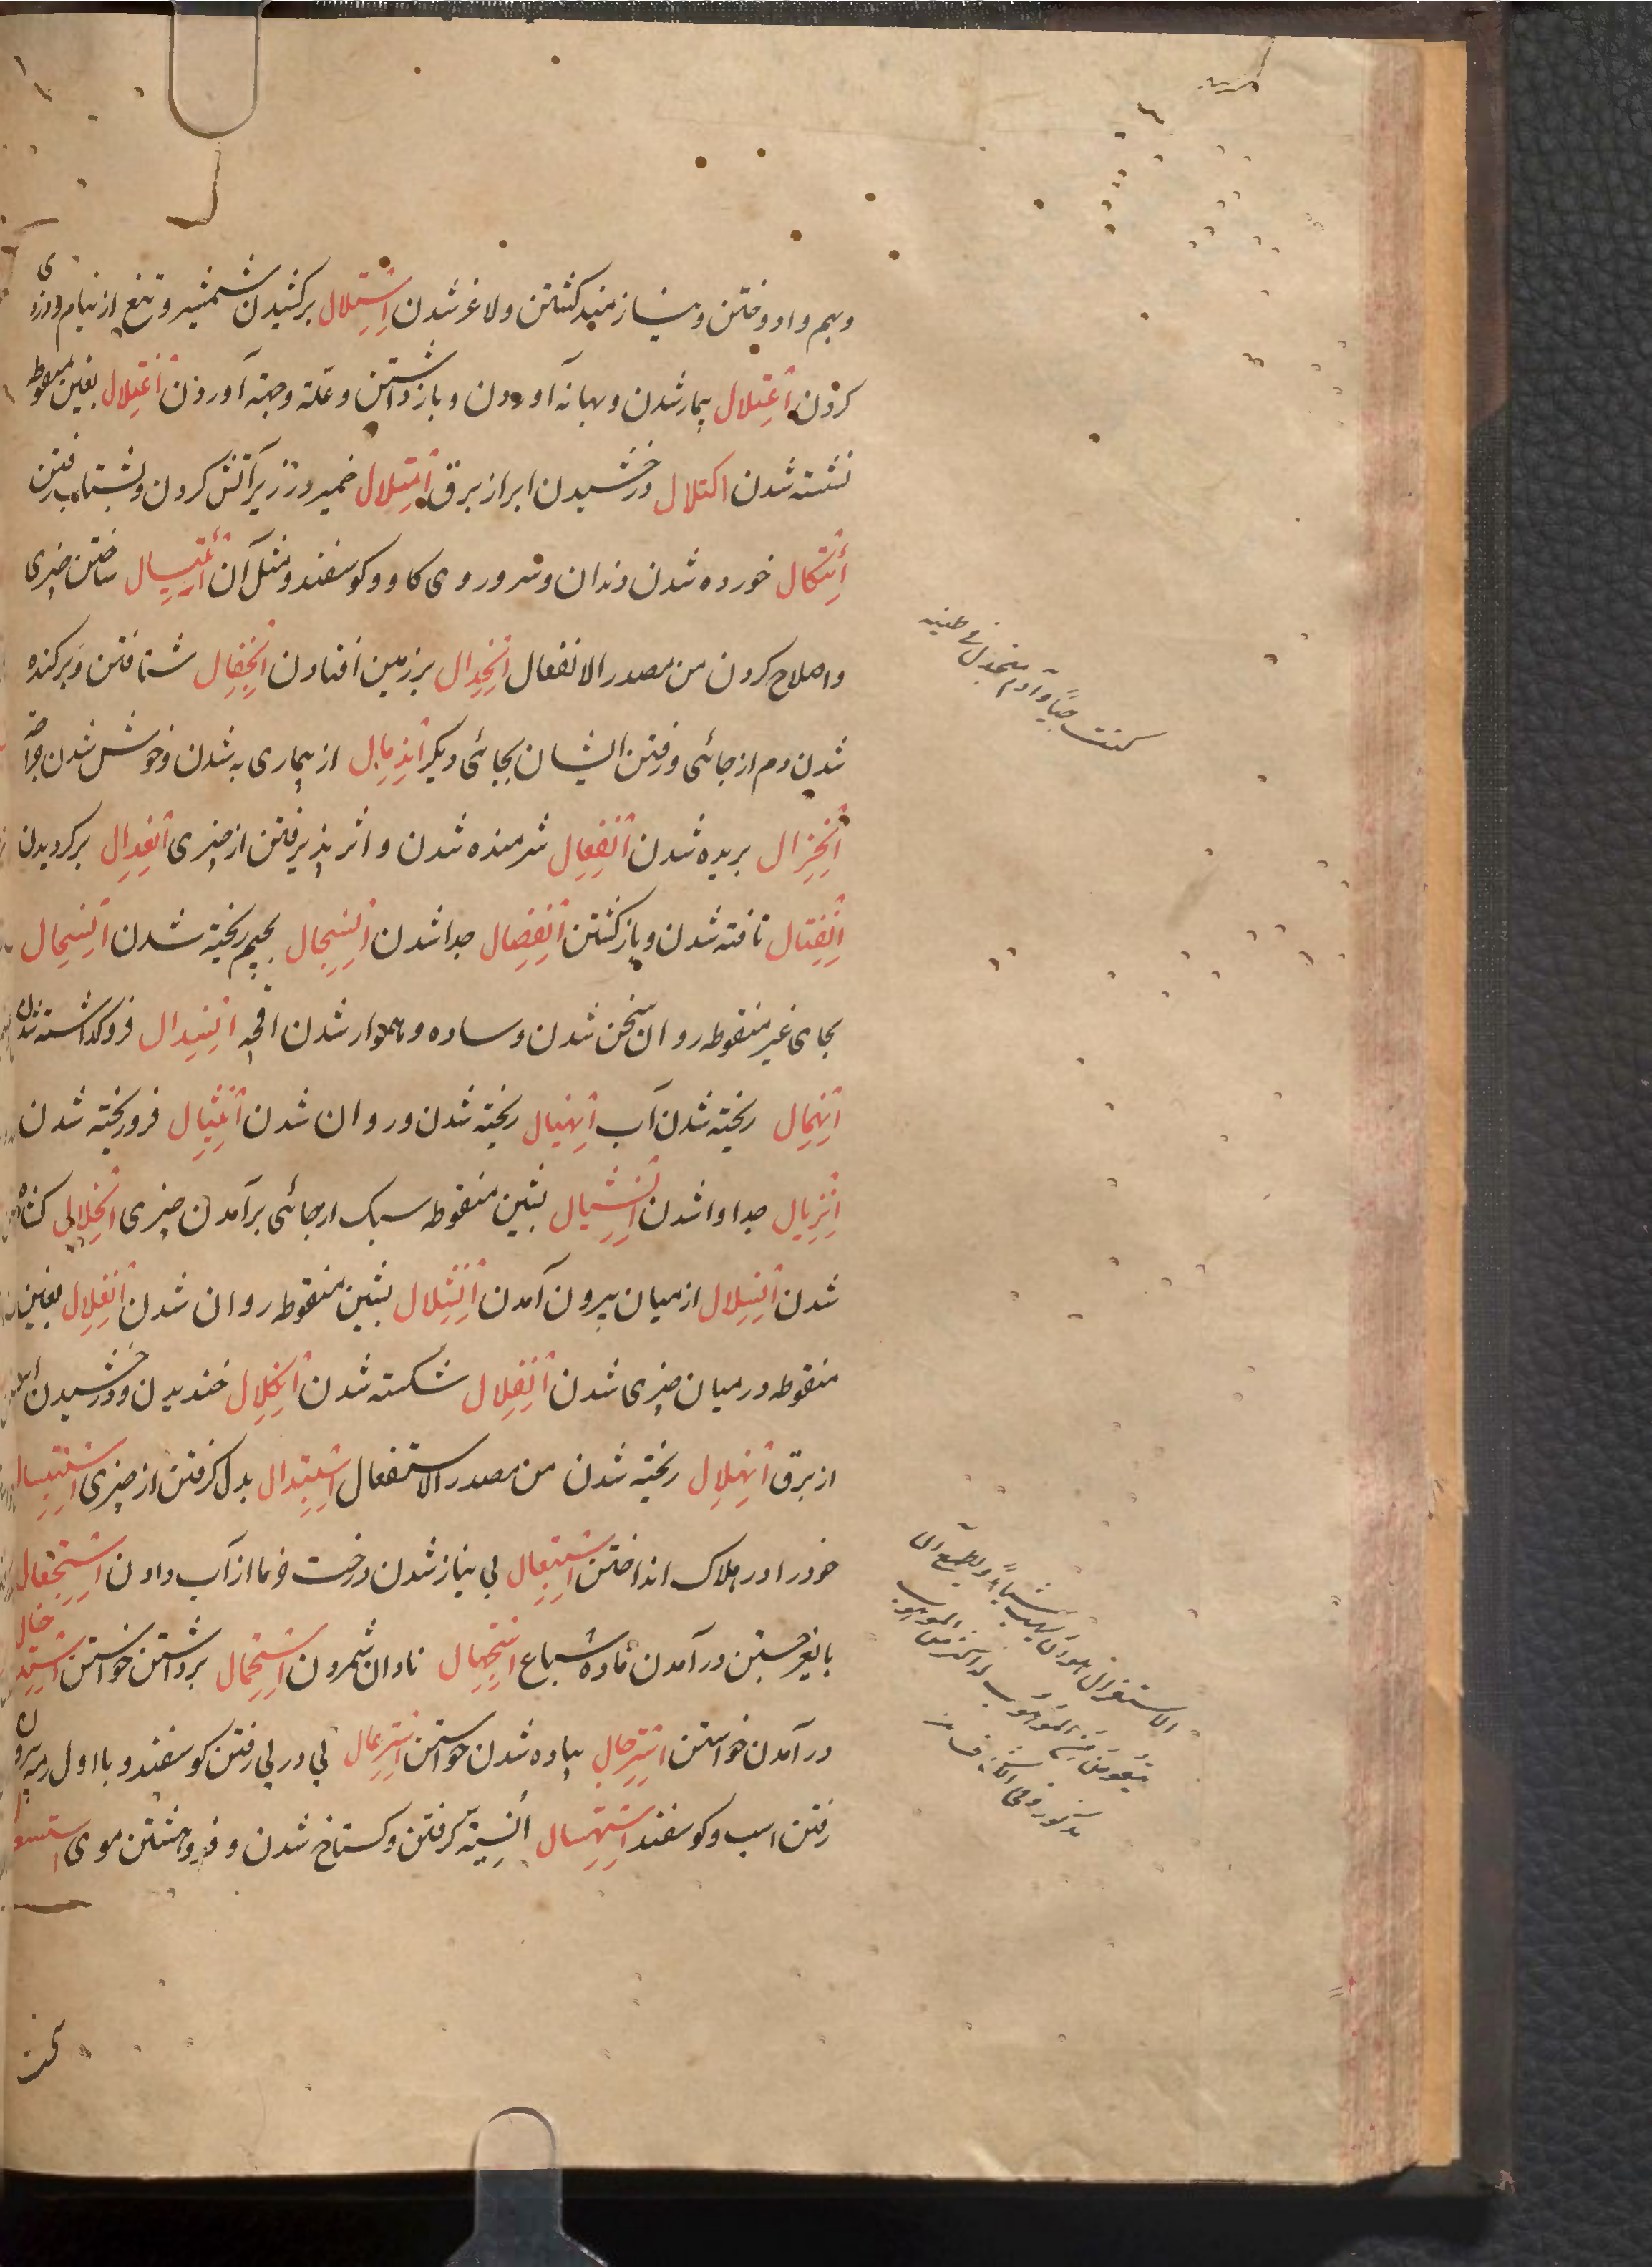 وبهم وادوختن ونیازمند کشتن ولاغر شدن اِسْتِلال برکشیدن شمشیر وتیغ از نیام ودزدی
کردن اِعْتِلال بیمار شدن وبهانه آوردن وبازداشتن وعلّة وحجّة آوردن اِغْتِلال بغین منقوطه
تشنه شدن اکتلال درخشیدن ابر از برق اِمْتِلال خمیر در زیر آتش کردن وبشتاب رفتن
اِئْتِکال خورده شدن دندان وسرو روی کاو وکوسفند ومثل آن اِئْتِیال ساختن چیزی
واصلاح کردن من مصدر الانفعال اِنْجِدال برزمین افتادن اِنْجِفال شتافتن وپرکنده
شدن دم از جائی ورفتن ایشان بجائی دیکر اِنْدِمال از بیماری به شدن وخوش شدن جراحة
اِنْخِزال بریده شدن اِنْفِعال شرمنده شدن واثر پذیرفتن از چیزی اِنْعِدال برکردیدن
اِنْفِتال تافته شدن وبازکشتن اِنْفِصال جدا شدن اِنْسِجال بجیم ریخته شدن اِنْسِحال
بحای غیر منقوطه روان سخن شدن وساده وهموار شدن اقچه اِنْسِدال فروکذاشته شدن
اِنْهِمال ریخته شدن آب اِنْهِیال ریخته شدن وروان شدن اِنْثِیال فروریخته شدن
اِنْزِیال جدا وا شدن اِنْشِیال بشین منقوطه سبک ازجائی برآمدن چیزی اِنْحِلال کشاده
شدن اِنْسِلال از میان بیرون آمدن اِنْشِلال بشین منقوطه روان شدن اِنْغِلال بغین
منقوطه درمیان چیزی شدن اِنْفِلال شکسته شدن اِنْکِلال خندیدن ودرخشیدن ابر
از برق اِنْهِلال ریخته شدن من مصدر الاستفعال اِسْتِبْدال بدل کرفتن از چیزی اِسْتِبْسال
خود را در هلاک انداختن اِسْتِبْعال بی نیاز شدن درخت خرما از آب دادن اِسْتِجْعال
در آمدن ماده سباع اِسْتِجْهال نادان شمردن اِسْتِحْمال برداشتن خواستن اِسْتِدْخال
درآمدن خواستن اِسْتِرْجال پیاده شدن خواستن اِسْتِرْعال پی در پی رفتن کوسفند وبا اول رمه بیرون
رفتن اسب وکوسفند اِسْتِرْسال اُنْسِیَّة کرفتن وکستاخ شدن وفروهشتن موی
کنت نبیّاً وآدم منجدل فی طینه
الاستغزار هو ان یهب شیئاً ویطمع ان
یتعوض من الموهوب له اکثر من الموهوب